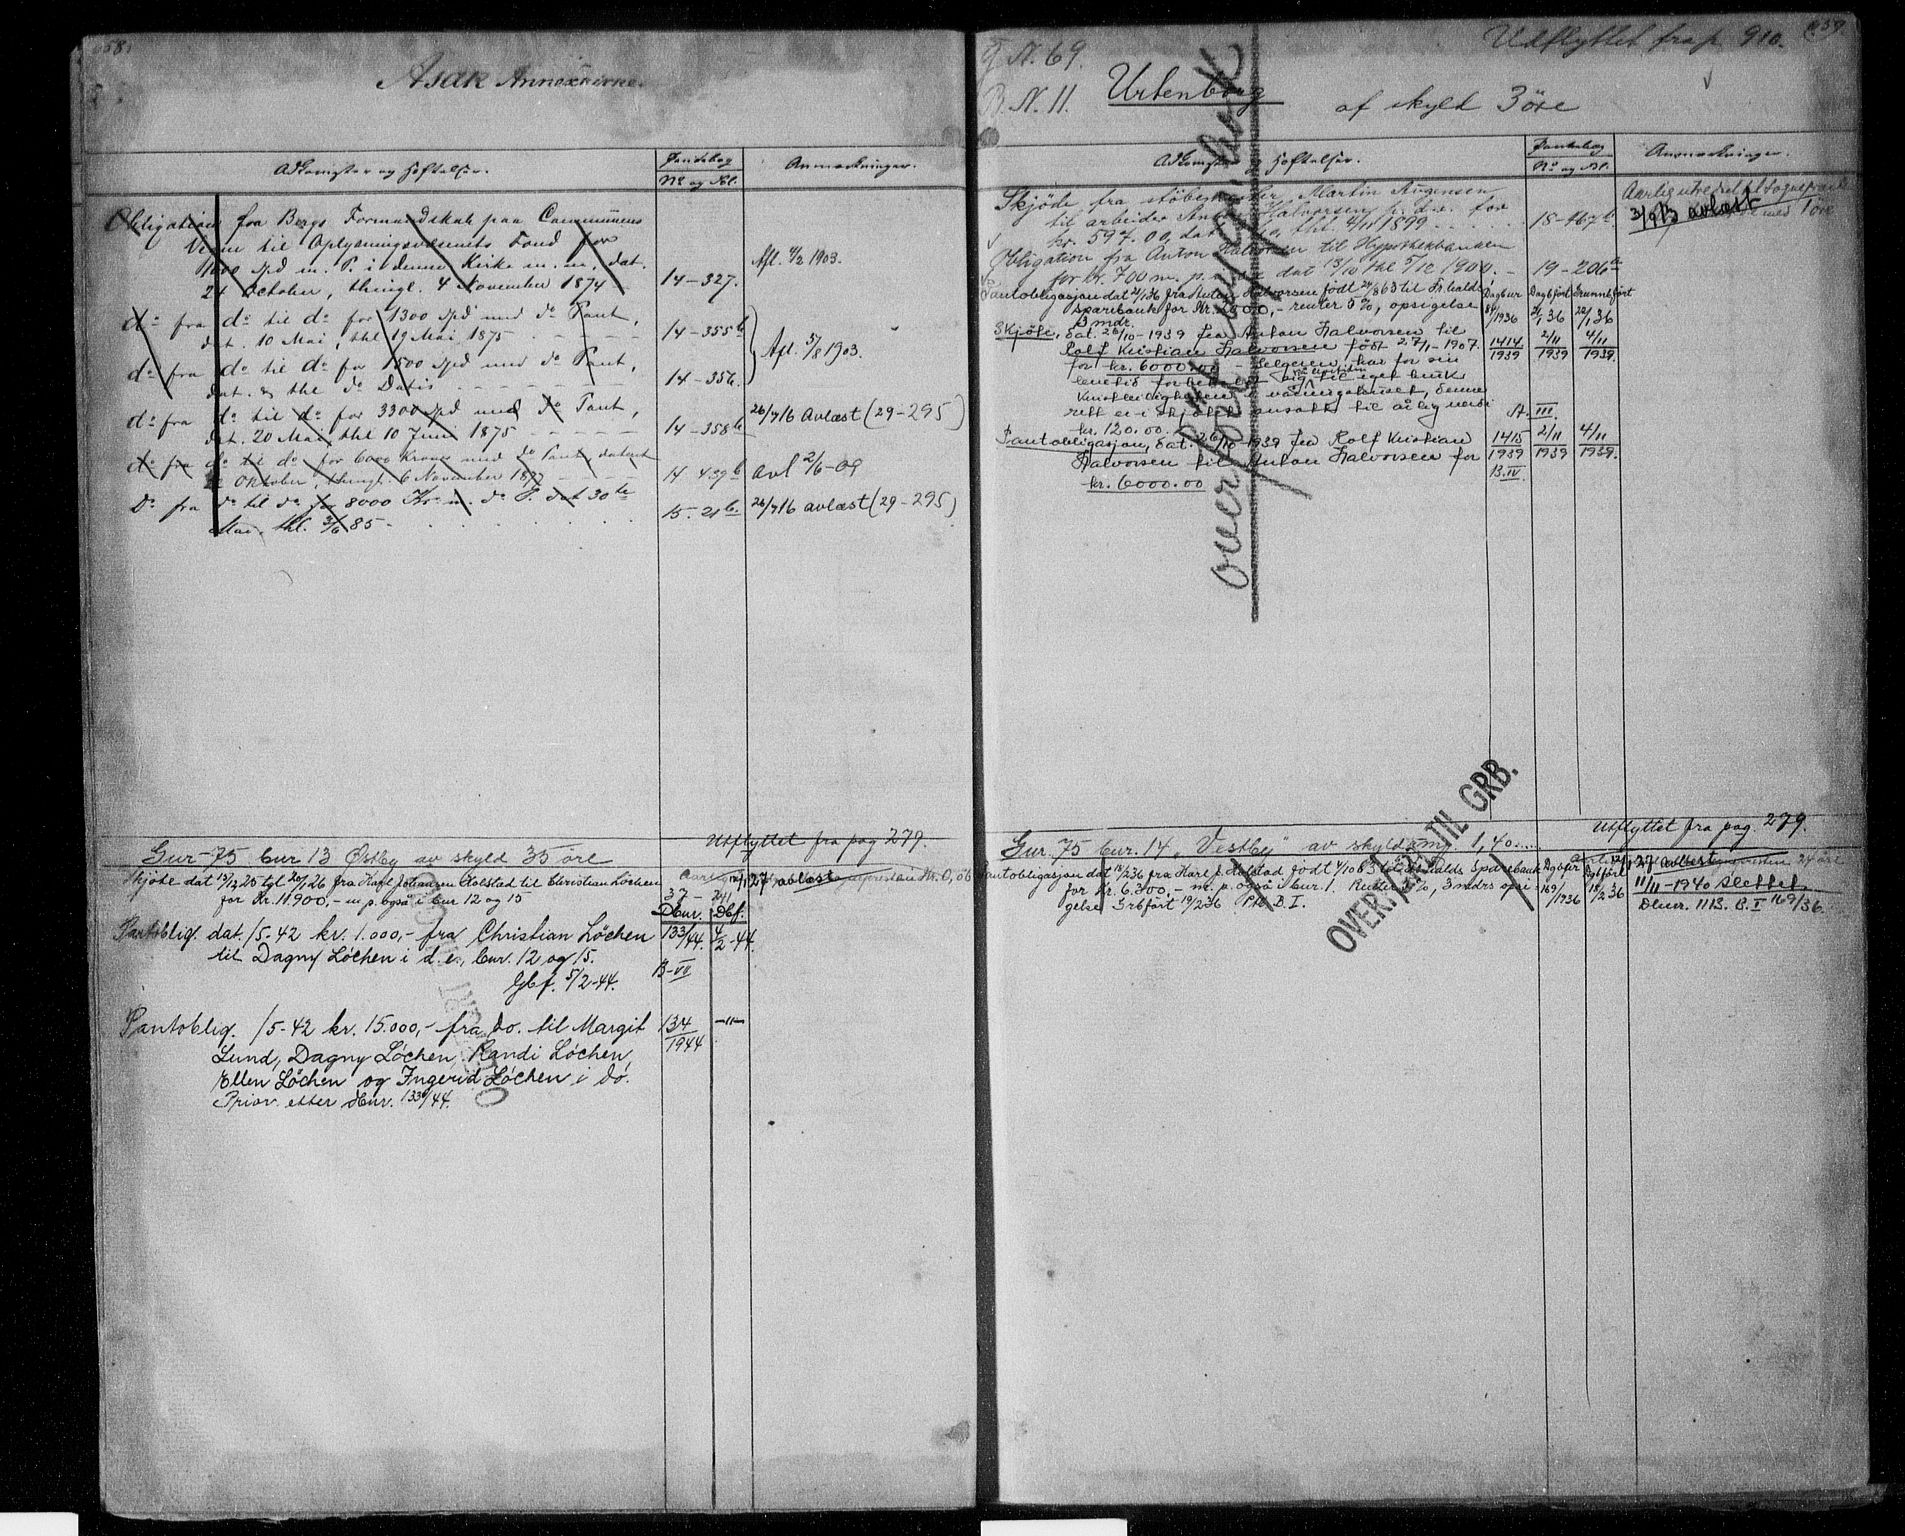 Asak Annexkirke.
Adkomster og Heftelser.
Pantebog
No og Bl.
Anmærkninger.
Obligation fra Bergs Formandskab paa Communens
Vegne til Oplysningsvæsenets Fond for
1600 spd m. P. i denne Kirke m. m. dat.
24 October, thingl. 4 November 1874
14-327.
Afl. 4/2 1903.
do fra do til do for 1300 spd med do Pant,
dat. 10 Mai, thl 19 Mai 1875
14-355b
do fra do til do for 1500 spd med do Pant,
dat. & thl do Datis
14-356.
Afl. 5/8 1903.
do fra do til do for 3300 spd med do Pant,
dat. 20 Mai, thl 10 Juni 1875
14-358b
26/7 16 avlæst (29-295)
do fra do til do for 6000 Kroner med do Pant, dateret
Oktober, thingl. 6 November 1877
14 439b
avl 2/6-09
Do fra do til do for 8000 Kr m. do P. dat 30te
Mai, thl. 3/6 85
15-21b
26/7 16 avlæst (29-295)
Utflyttet fra pag 279.
Gnr-75 bnr 13 Østby av skyld 35 øre
Skjøte dat 15/12 25 tgl 20/1 26 fra Karl Johansen Holstad til Christian Løchen
for Kr. 11.900,- m.p. også i bnr 12 og 15
37-241
12/1 27 avlæst
Dbnr. Dbf.
Pantoblig. dat. /5-42 kr. 1.000,- fra Christian Løchen
til Dagny Løchen i d.e., bnr. 12 og 15.
Gbf. 5/2-44.
133/44. 4/2-44.
B-VII
Pantoblig. /5-42 kr. 15.000,- fra do. til Margit
Lund, Dagny Løchen, Randi Løchen,
Ellen Løchen og Ingerid Løchen i do.
Prior. etter dbnr. 133/44.
134/1944
-"-
Udflyttet fra p. 910.
959
G. N. 69.
B. N. 11. Urtenborg af skyld 3 øre
Adkomster og Heftelser.
Pantebog
No og Bl.
Anmærkninger.
Skjøde fra støbemester Martin Augensen
til arbeider Anton Halvorsen p. d. e. for
kr. 594.00, dat thl. 4/11 1899
18-467b
3/9 13 avlæst
Obligation fra Anton Halvorsen til Hypothekbanken
for kr. 700 m. p. dat 13/10 thl 5/12 1900.
19-206b
Pantobligasjon dat 21/1 36 fra Anton Halvorsen født 24/8 63 til Fr.halds
sparebank for Kr. 800,- renter 5%, opsigelse
3 mdr.
Dagbnr
Dagbført
Grunnbført
84/1936
21/1 36
22/1 36
Skjøte, dat. 26/10-1939 fra Anton Halvorsen til
Rolf Kristian Halvorsen født 27/1-1907.
for kr. 6000.00 - Selgeren har for sin
levetid forbeholdt sig og hustru til eget bruk
leiligheten i våningshuset, denne
rett er i skjøtet ansatt til årlig verdi
kr. 120.00.
1414/1939
2/11 1939
4/11 1939.
A. III.
Pantobligasjon, dat. 26/10-1939 fra Rolf Kristian
Halvorsen til Anton Halvorsen for
kr. 6000.00
1415/1939
B. IV
2/11 1939
4/11 1939.
overført ny gr. bok
Utflyttet fra pag. 279.
Gnr. 75 bnr. 14 "Vestby" av skyldmrk. 1,40
Pantobligasjon dat 14/2 36 fra Karl J. Holstad født 4/10 83 til Fr.halds Sparebank
for Kr. 6.300,- m. p. også i bnr 1. Renter %, 3 mdrs opsi-
gelse Grbført 19/2 36 Pb B. I.
Dgbnr
169/1936
Dgbført
18/2 36
12/1 27 avlæst
11/11-1940 slettet
Dbnr. 1113. B. I 169/36.
OVERF. TIL GRB.